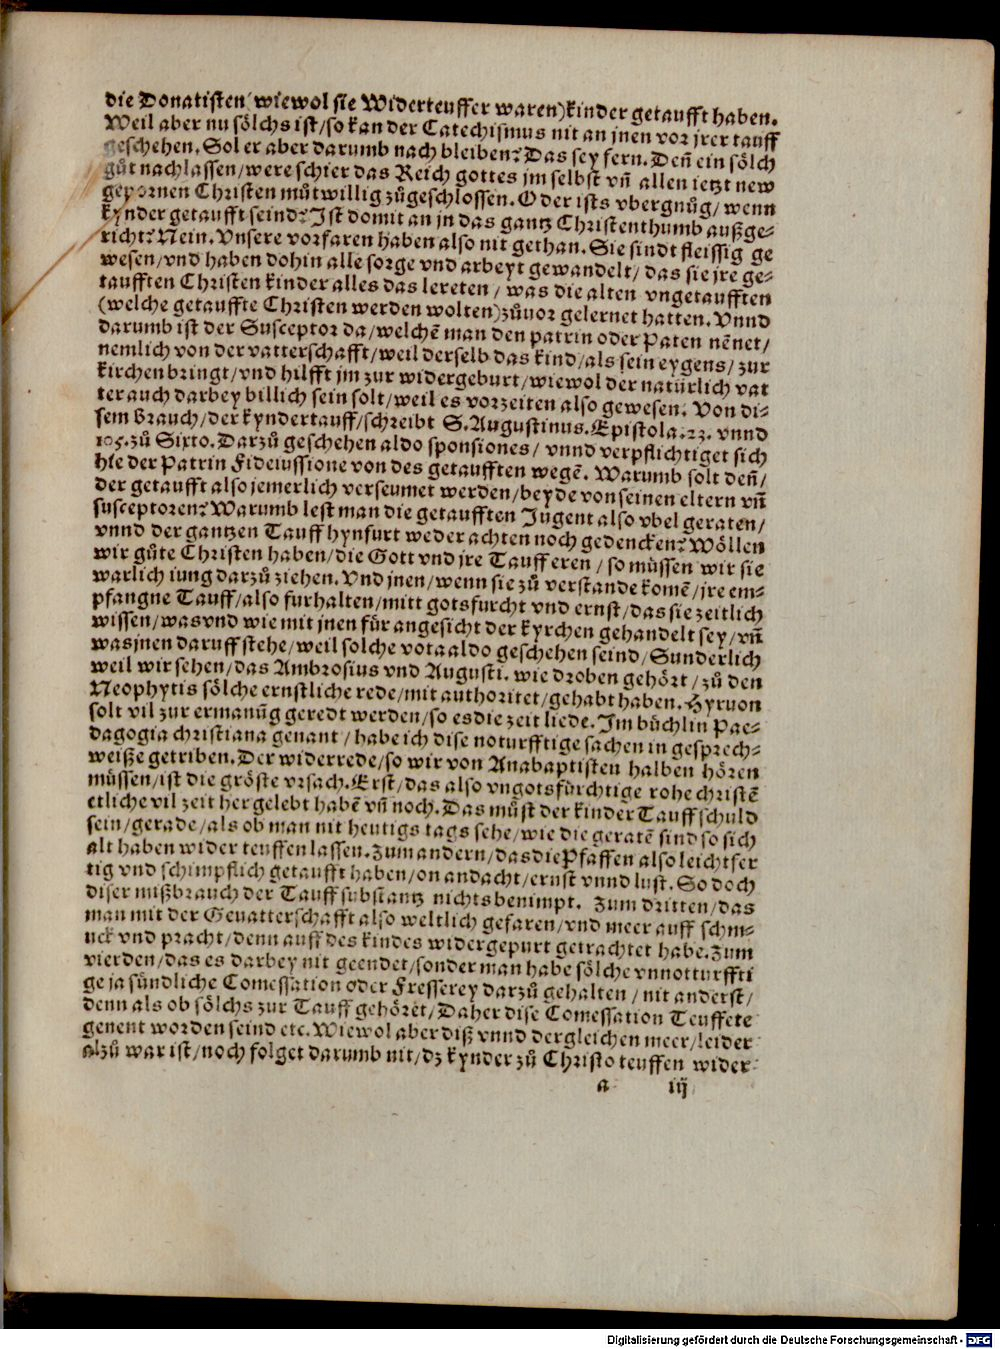 die Donatisten (wiewol sie Widerteuffer waren) kinder getaufft haben.
Weil aber nu soͤlchs ist/ so kan der Catechismus nit an jnen vor jrer tauff
geschehen. Sol er aber darumb nach bleiben? Das sey fern. Deñ ein soͤlch
guͦt nachlassen/ were schier das Reich gottes jm selbst vñ allen ietzt new
gepornen Christen muͦtwillig zuͦgeschlossen. Oder ists vbergnuͦg/ wenn
kynder getaufft seind? Ist domit an jn das gantz Christenthumb außge-
richt? Nein. Vnsere vorfaren haben also nit gethan. Sie sindt fleissig ge
wesen/ vnd haben dohin alle sorge vnd arbeyt gewandelt/ das sie jre ge-
taufften Christen kinder alles das lereten/ was die alten vngetaufften
(welche getauffte Christen werden wolten) zuͦuor gelernet hatten. Vnnd
darumb ist der Susceptor da/ welchē man den patrin oder Paten nēnet/
nemlich von der vatterschafft/ weil derselb das kind/ als sein eygens/ zur
kirchen bringt/ vnd hilfft jm zur widergeburt/ wiewol der natürlich vat
ter auch darbey billich sein solt/ weil es vorzeiten also gewesen. Von di-
sem brauch/ der kyndertauff/ schreibt S. Augustinus. Epistola. 23. vnnd
105. zuͦ Sixto. Darzuͦ geschehen aldo sponsiones/ vnnd verpflichtiget sich
hie der Patrin Fideiussione von des getaufften wegē. Warumb solt deñ/
der getaufft also jemerlich verseumet werden/ beyde von seinen eltern vñ
susceptoren? Warumb lest man die getaufften Jugent also vbel geraten/
vnnd der gantzen Tauff hynfurt weder achten noch gedencken? Woͤllen
wir guͦte Christen haben/ die Gott vnd jre Tauff eren/ so müssen wir sie
warlich iung darzuͦ ziehen. Vnd jnen/ wenn sie zuͦ verstande komē/ jre em-
pfangne Tauff/ also furhalten/ mitt gotsfurcht vnd ernst/ das sie zeitlich
wissen/ was vnd wie mit jnen für angesicht der kyrchen gehandelt sey/ vñ
was jnen daruff stehe/ weil solche vota aldo geschehen seind/ Sunderlich
weil wir sehen/ das Ambrosius vnd Augusti. wie droben gehoͤrt/ zuͦ den
Neophytis soͤlche ernstliche rede/ mit authoritet/ gehabt haben. Hyruon
solt vil zur ermanūg geredt werden/ so es die zeit liede. Im buͤchlin Pae-
dagogia christiana genant/ habe ich dise noturfftige sachen in gesprech-
weiße getriben. Der widerrede/ so wir von Anabaptisten halben hoͤren
müssen/ ist die groͤste vrsach. Erst/ das also vngotsfürchtige rohe christē
etliche vil zeit her gelebt habē vñ noch. Das muͤst der kinder Tauff schuld
sein/ gerade/ als ob man nit heutigs tags sehe/ wie die geratē sind so sich
alt haben wider teuffen lassen. Zum andern/ das die Pfaffen also leichtfer
tig vnd schimpflich getaufft haben/ on andacht/ ernst vnnd lust. So doch
diser mißbrauch der Tauff substantz nichts benimpt. Zum dritten/ das
man mit der Geuatterschafft also weltlich gefaren/ vnd meer auff schm-
uck vnd pracht/ denn auff des kindes widergepurt getrachtet habe. Zum
vierden/ das es darbey nit geendet/ sonder man habe soͤlche vnnotturffti
ge ja sündliche Comessation oder Fresserey darzuͦ gehalten/ nit anderst/
denn als ob soͤlchs zur Tauff gehoͤret/ Daher dise Comessation Teuffete
genent worden seind etc. Wiewol aber diß vnnd dergleichen meer/ leider
alzuͦ war ist/ noch folget darumb nit/ dz kynder zuͦ Christo teuffen wider
a iij
Digitalisierung gefördert durch die Deutsche Forschungsgemeinschaft - DFG